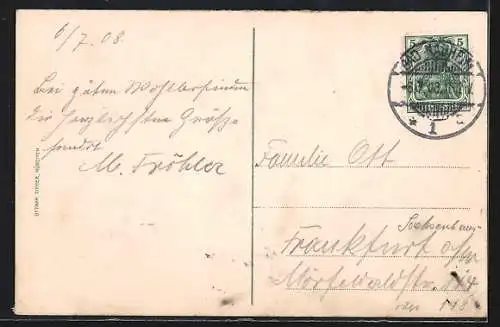 6/7.08.
Bei gutem Wohlbefinden
die herzlichsten Grüße
sendet
M. Fröhler
OTTMAR ZIEHER, MÜNCHEN
5 5
BAD NAUHEIM
* 1 c
Familie Ott
Sachsenhausen
Frankfurt a/M
Mörfelderldstr.